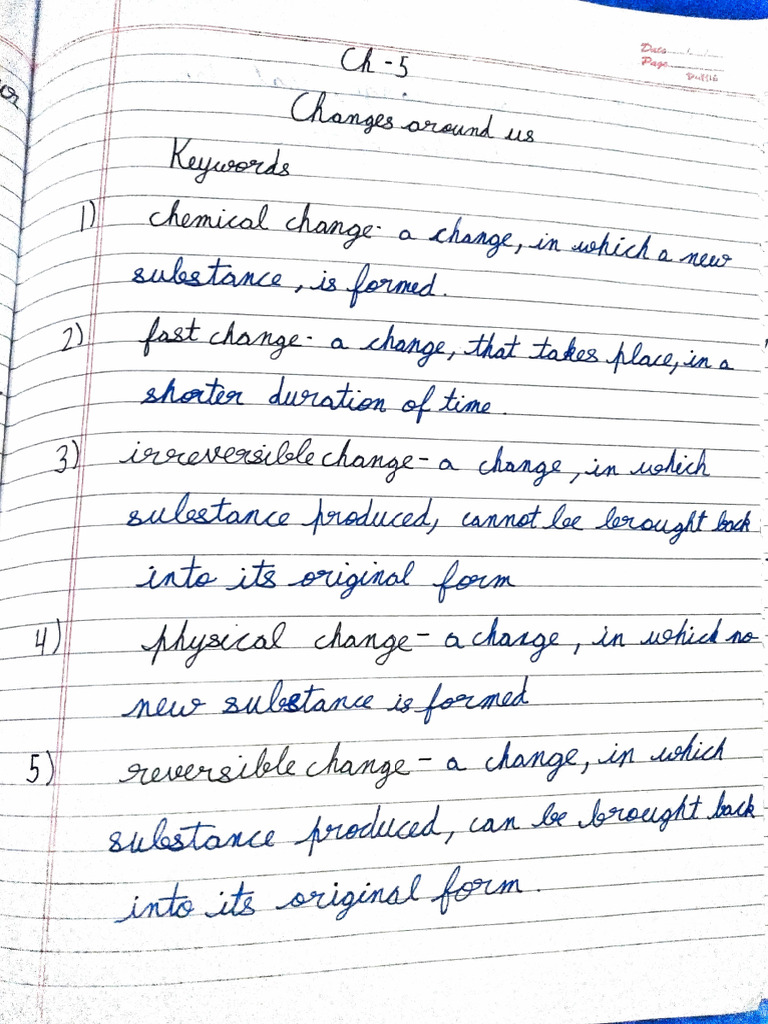 Date
Page
Ch - 5
Changes around us
Keywords
1) chemical change - a change, in which a new
substance, is formed.
2) fast change - a change, that takes place, in a
shorter duration of time.
3) irreversible change - a change, in which
substance produced, cannot be brought back
into its original form
4) physical change - a change, in which no
new substance is formed
5) reversible change - a change, in which
substance produced, can be brought back
into its original form.